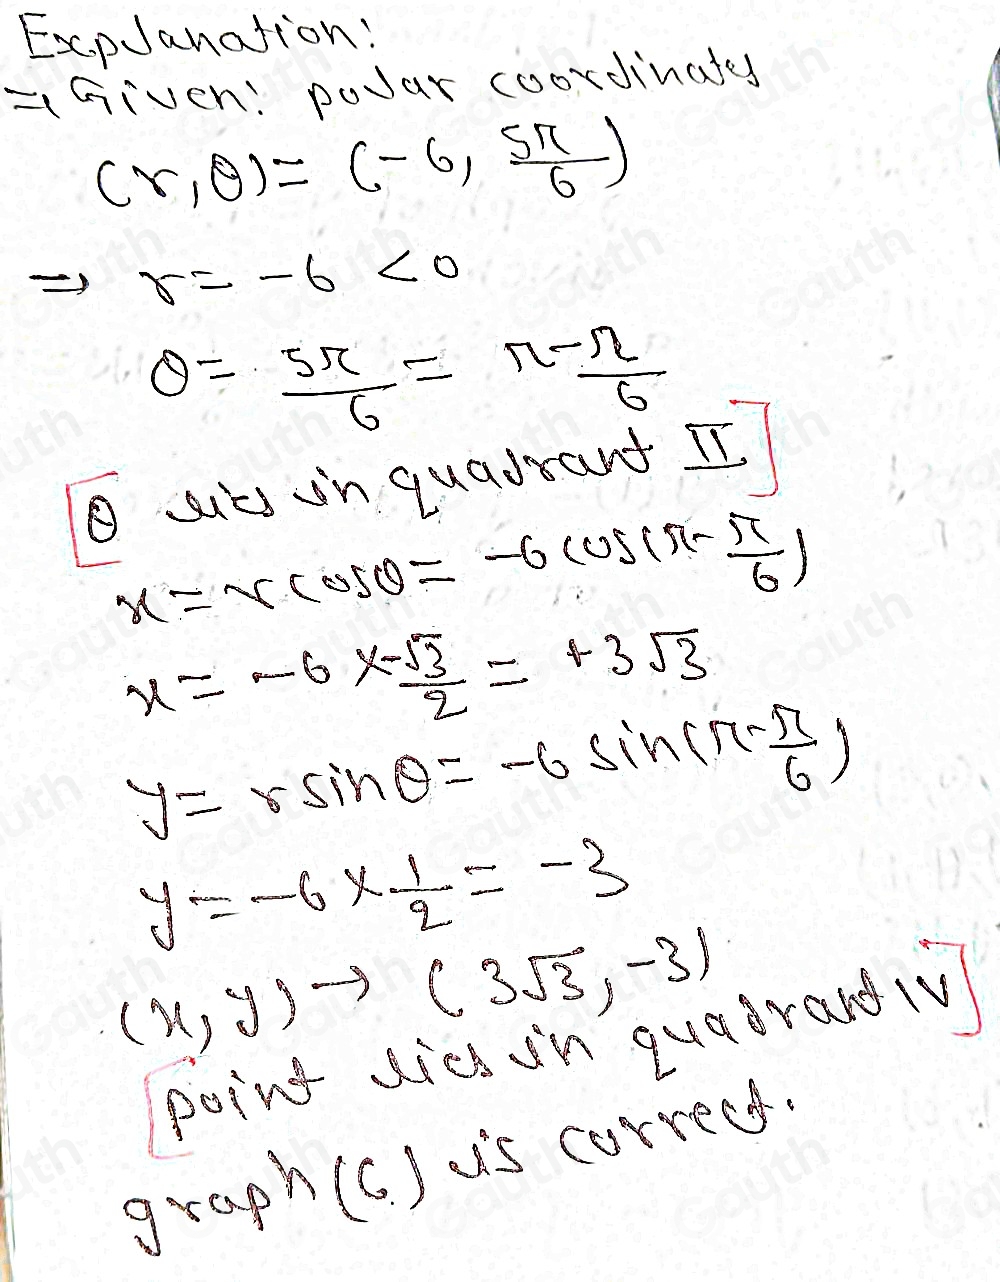 Explanation:
⇒ Given: polar coordinates
(r, θ) = (-6, 5π/6)
⇒ r = -6 < 0
θ = 5π/6 = π - π/6
[θ lies in quadrant II]
x = r cosθ = -6 cos(π - π/6)
x = -6 × -√3/2 = +3√3
y = r sinθ = -6 sin(π - π/6)
y = -6 × 1/2 = -3
(x, y) → (3√3, -3)
[point lies in quadrant IV]
graph (C) is correct.